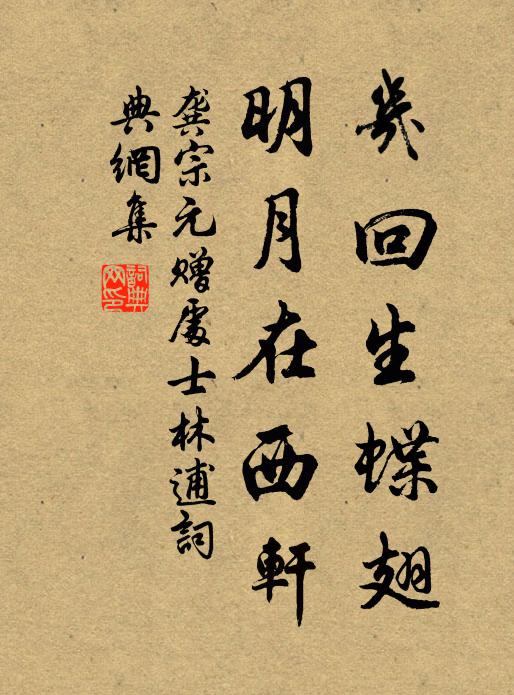 幾回生蝶翅
明月在西軒
龔宗元贈處士林逋詞
典網集
詞典網印